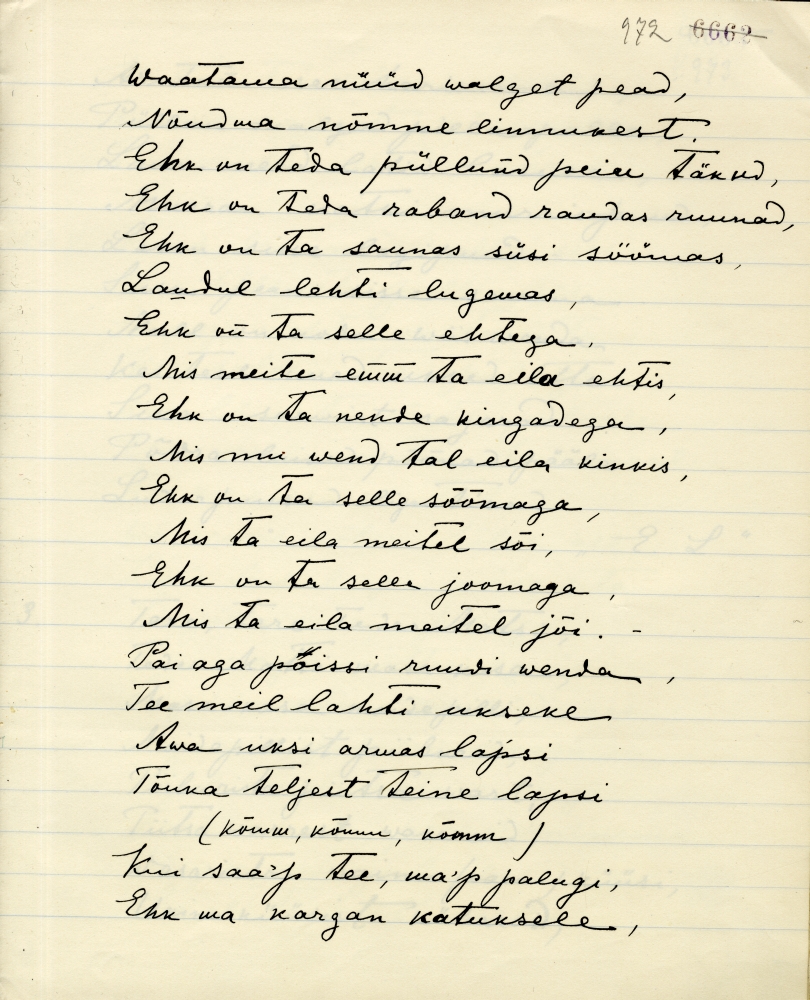 972 6662
Waatama nüüd walget pead,
Nõudma nõmme linnukest.
Ehk on teda püllund peiu täkud,
Ehk on teda raband raudas ruunad,
Ehk on ta saunas süsi söömas,
Laudul lehti lugemas,
Ehk on ta selle ehtega,
Mis meite emm ta eila ehtis,
Ehk on ta nende kingadega,
Mis mu wend tal eila kinkis,
Ehk on ta selle söömaga,
Mis ta eila meitel sõi,
Ehk on ta selle joomaga,
Mis ta eila meitel jõi. -
Pai aga poissi ruudi wenda,
Tee meil lahti ukseke
Awa uksi armas lapsi
Tõuka teljest teine lapsi
(kõmm, kõmm, kõmm)
Kui saa'p tee, ma'p palugi,
Ehk ma kargan katuksele,